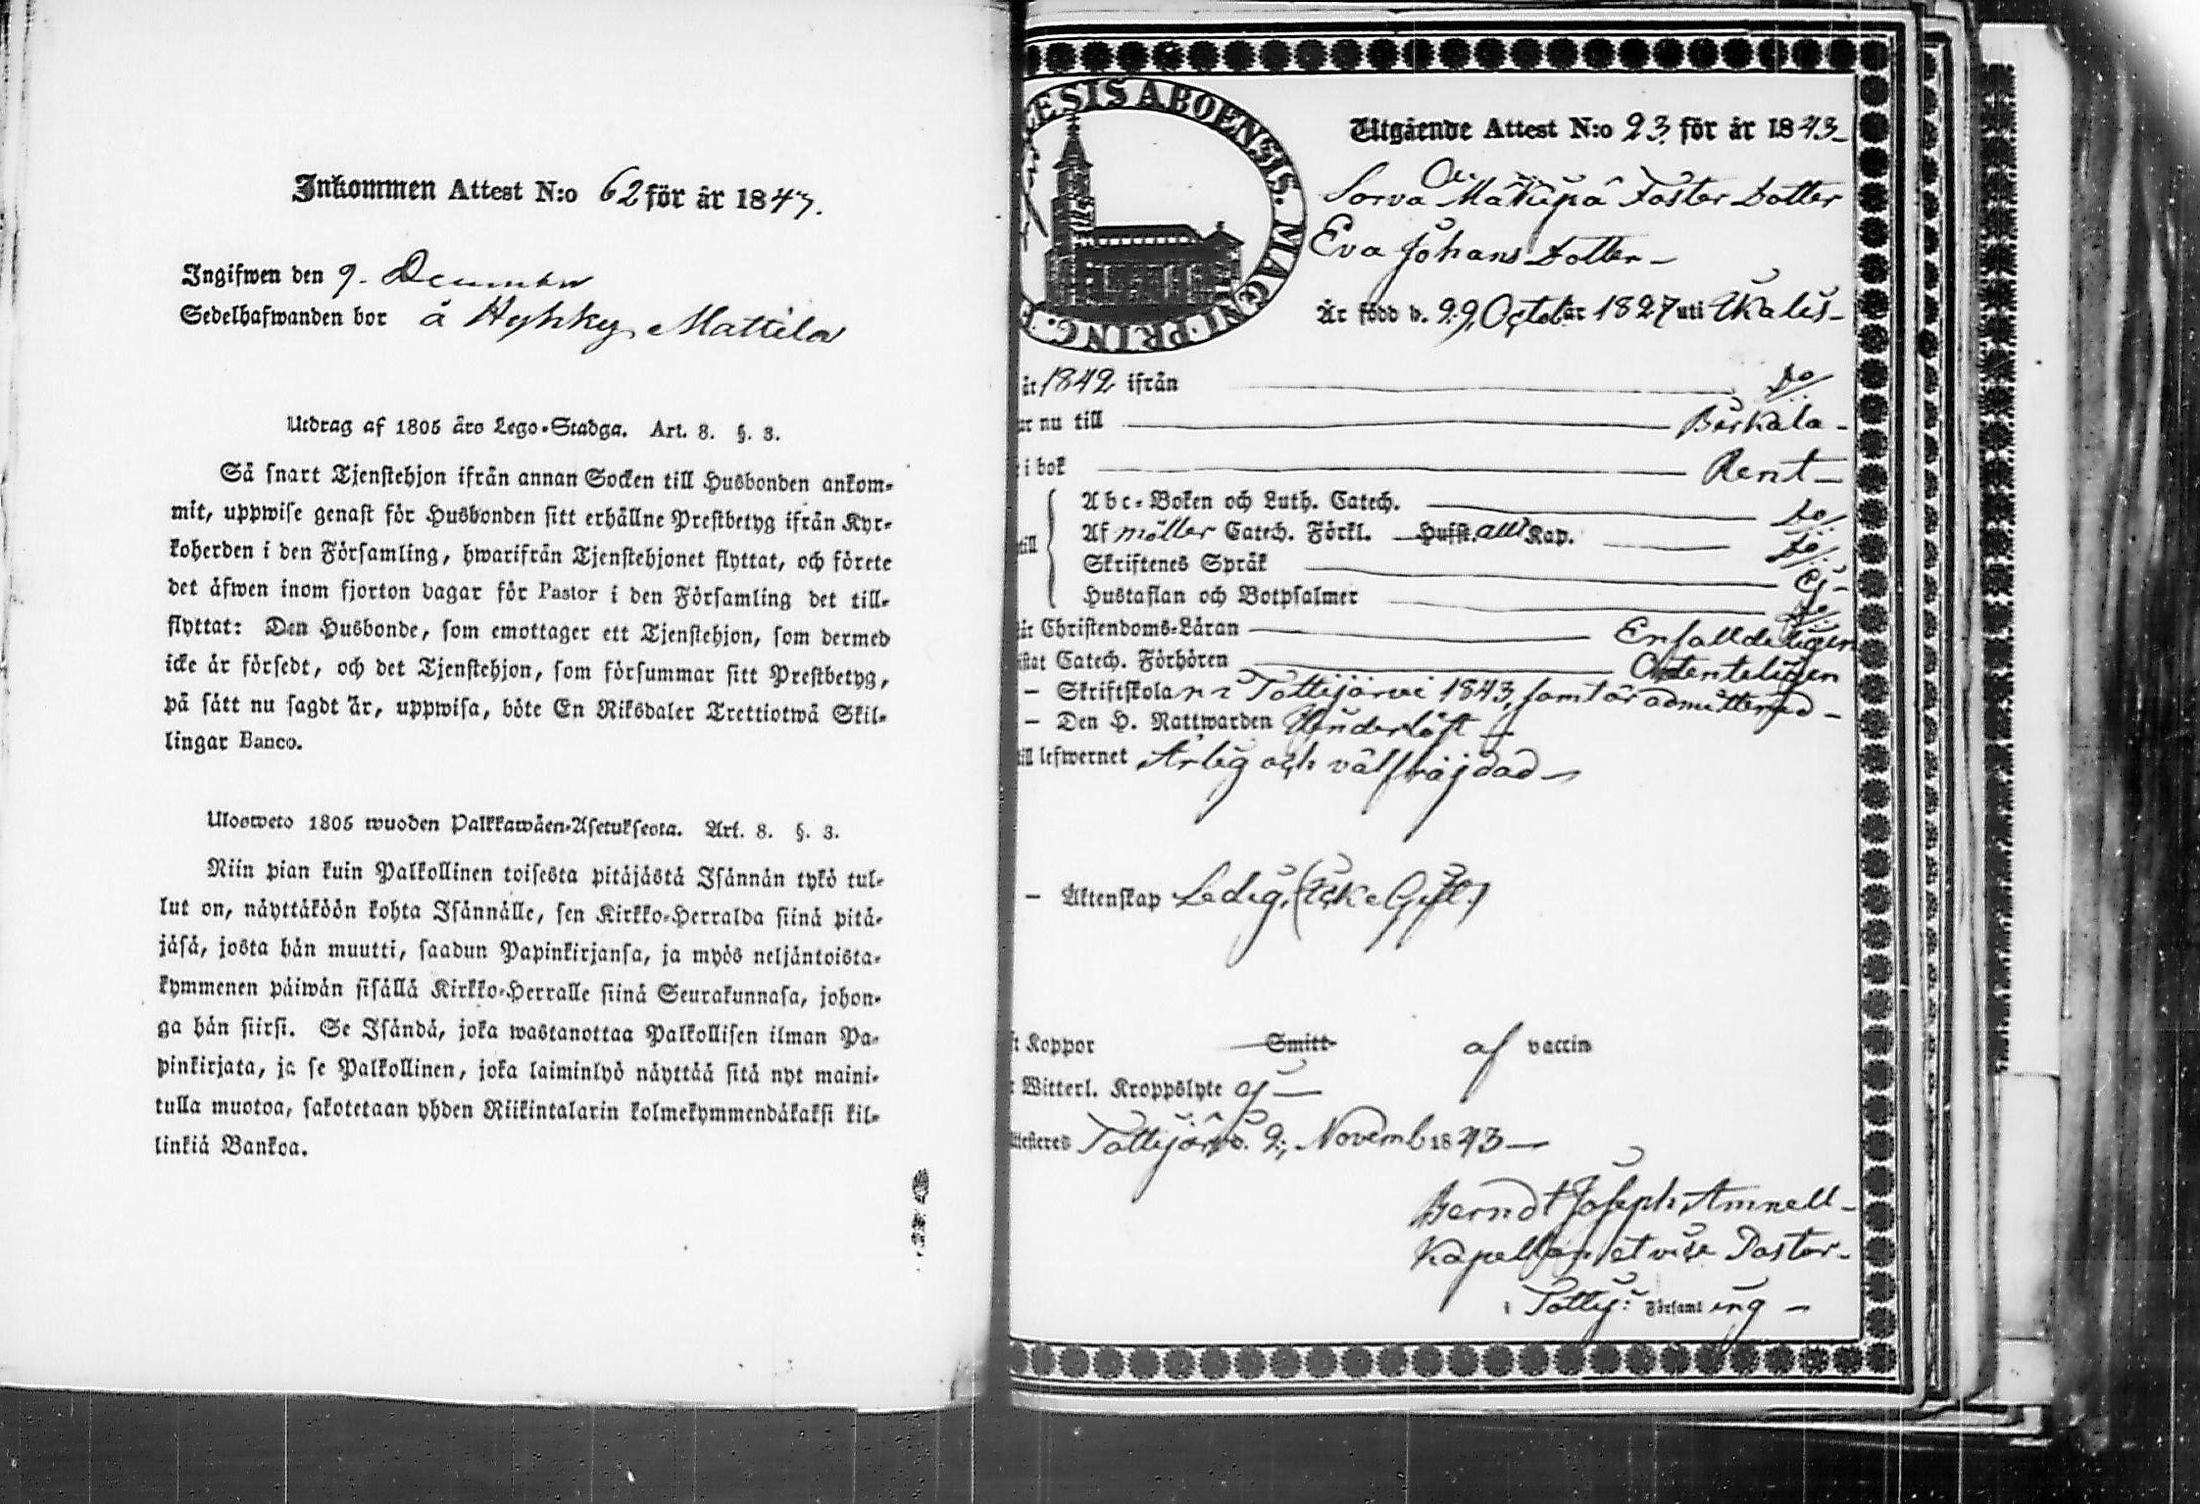 Inkommen Attest N:o 62 för år 1843.
Ingifwen den 9. December
Sedelhafwanden bor å Hyhky Mattila
Utdrag af 1805 års Lego-Stadga. Art. 8. §. 3.
Så snart Tjenstehjon ifrån annan Socken till Husbonden ankom-
mit, uppwise genast för Husbonden sitt erhållne Prestbetyg ifrån Kyr-
koherden i den Församling, hwarifrån Tjenstehjonet flyttat, och förete
det äfwen inom fjorton dagar för Pastor i den Församling det till-
flyttat: Den Husbonde, som emottager ett Tjenstehjon, som dermed
icke är försedt, och det Tjenstehjon, som försummar sitt Prestbetyg,
på sätt nu sagdt är, uppwisa, böte En Riksdaler Trettiotwå Skil-
lingar Banco.
Ulosweto 1805 wuoden Palkkawäen-Asetuksesta. Art. 8. §. 3.
Niin pian kuin Palkollinen toisesta pitäjästä Isännän tykö tul-
lut on, näyttäköön kohta Isännälle, sen Kirkko-Herralda siinä pitä-
jäsä, josta hän muutti, saadun Papinkirjansa, ja myös neljäntoista-
kymmenen päiwän sisällä Kirkko-Herralle siinä Seurakunnasa, johon-
ga hän siirsi. Se Isändä, joka wastanottaa Palkollisen ilman Pa-
pinkirjata, ja se Palkollinen, joka laiminlyö näyttää sitä nyt maini-
tulla muotoa, sakotetaan yhden Riikintalarin kolmekymmendäkaksi kil-
linkiä Bankoa.
ESIS ABOENSIS. MAGNI PRINC. F
Utgående Attest N:o 23. för år 1843
Sorva Foster Dotter
Eva Johans Dotter
Är född d. 29 October 1827 uti Ikalis
år 1842 ifrån Do
nu till Birkala
i bok Rent
Abc-Boken och Luth. Catech. Do
Af Möller Catech. Förkl. Hufst. allt Kap. Do
Skriftenes Språk Ej
Hustaflan och Botpsalmer Do
Christendoms-Läran Enfalldeligen
Catech. Förhören Ordenteligen
– Skriftskolan i Tottijärvi 1843, samt är admitterad
– Den H. Nattwarden Hinderlöst
till lefwernet Ärlig och välfräjdad
– Äktenskap Ledig, (Icke Gift.)
Koppor Smitt af vaccin
Witterl. Kroppslyte ej
Tottijärvi d. 2; Novemb 1843
Berndt Joseph Amnell
Kapellan et vice Pastor
i Tottij: Församling